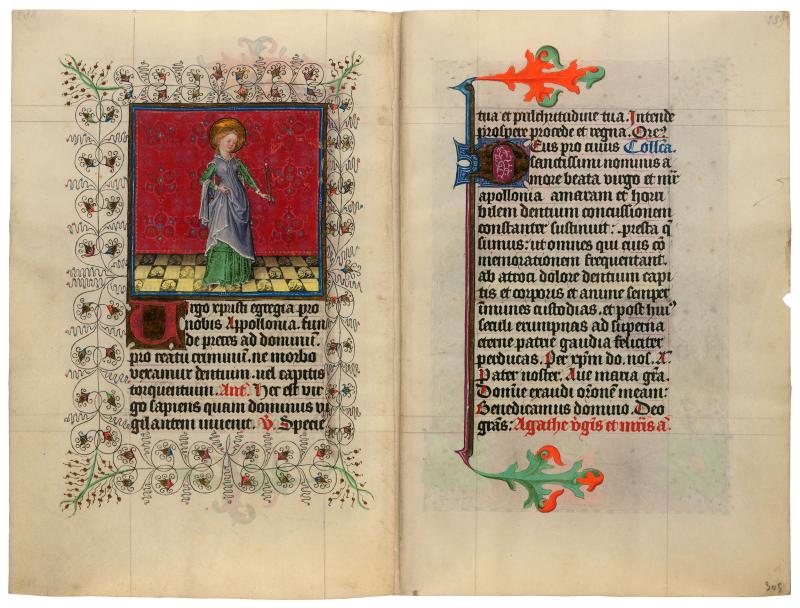 Virgo xpisti egregia pro
nobis Appollonia. fun
de preces ad dominum.
pro reatu criminum. ne morbo
vexamur dentium. uel capitis
torquentium. Ant. Hec est vir
go sapiens quam dominus vi
gilantem inuenit. V. Specie
tua et pulchritudine tua. Intende
prospere procede et regna. Ore?
Deus pro cuius Collca.
sanctissimi nominis a
more beata virgo et mr
apollonia amaram et horri
bilem dentium concussionem
constanter sustinuit: presta q̄
sumus: ut omnes qui eius cō
memorationem frequentant.
ab atroci dolore dentium capi
tis et corporis et anime semper
immunes custodias. et post huiꝰ
seculi erumpnas ad superna
eterne patrie gaudia feliciter
perducas. Per xpm do. nos. A.
Pater noster. Aue maria gra.
Domine exaudi orōnem meam:
Benedicamus domino. Deo
gras: Agathe vgis et mris a.
305